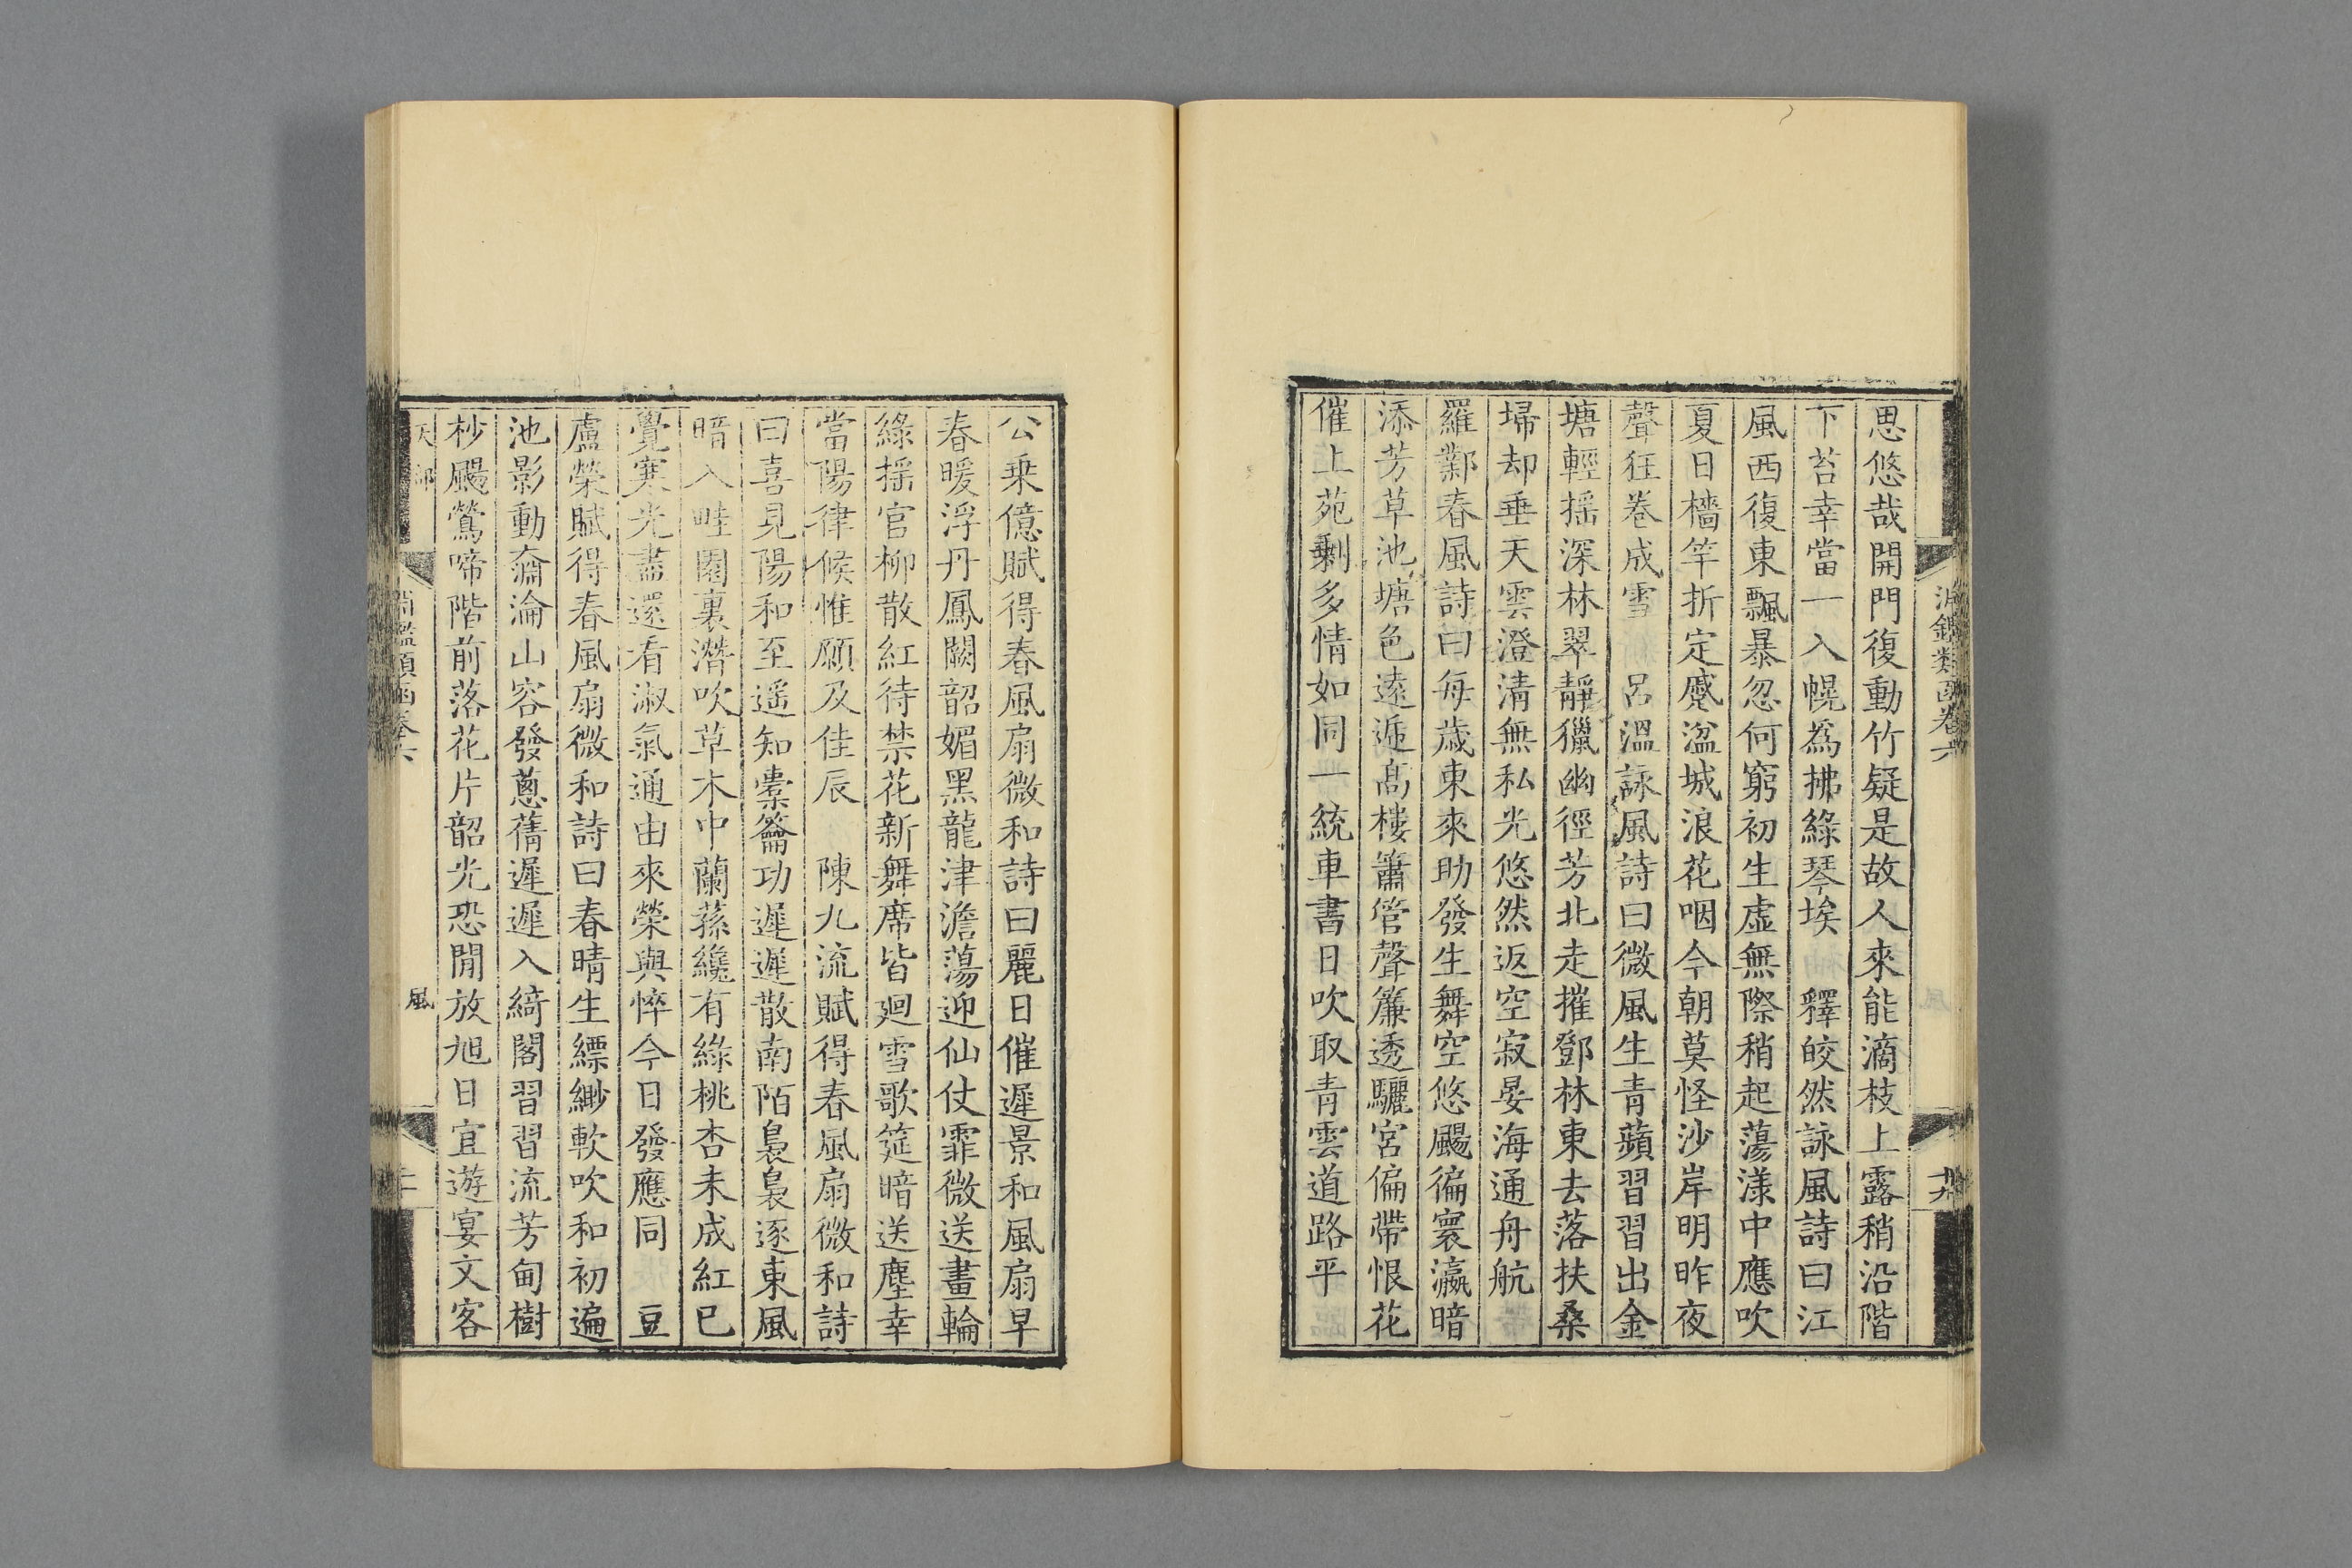 淵鑑類函卷六
十九
思悠哉開門復動竹疑是故人來能滴枝上露稍沿階
下苔幸當一入幌爲拂綠琴埃　釋皎然詠風詩曰江
風西復東飄暴忽何窮初生虛無際稍起蕩漾中應吹
夏日檣竿折定蹙湓城浪花咽今朝莫怪沙岸明昨夜
聲狂卷成雪　呂溫詠風詩曰微風生青蘋習習出金
塘輕摇深林翠靜獵幽徑芳北走摧鄧林東去落扶桑
埽却垂天雲澄清無私光悠然返空寂晏海通舟航
羅鄴春風詩曰每歲東來助發生舞空悠颺徧寰瀛暗
添芳草池塘色遠遞髙樓簫管聲簾透驪宮偏帶恨花
催上苑剩多情如同一統車書日吹取青雲道路平
公乗億賦得春風扇微和詩曰麗日催遲景和風扇早
春暖浮丹鳳闕韶媚黑龍津澹蕩迎仙仗霏微送畫輪
綠摇官柳散紅待禁花新舞席皆廻雪歌筵暗送塵幸
當陽律候惟願及佳辰　陳九流賦得春風扇微和詩
曰喜見陽和至遥知橐籥功遲遲散南陌裊裊逐東風
暗入畦園裏潛吹草木中蘭蓀纔有綠桃杏未成紅已
覺寒光盡還看淑氣通由來榮與悴今日發應同　豆
盧榮賦得春風扇微和詩曰春晴生縹緲軟吹和初遍
池影動奫淪山容發蔥蒨遲遲入綺閣習習流芳甸樹
杪颺鶯啼階前落花片韶光恐閒放旭日宜遊宴文客
天部
淵鑑類函卷六
風